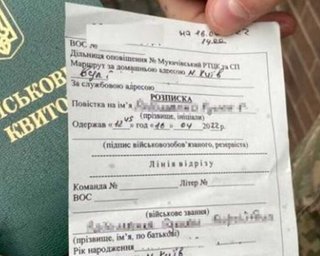 ВІЙСЬКОВО
КВИТОК
на 16.04
14.00
ВОС №
Дільниця оповіщення № Мукачівський РТЦК та СП
Маршрут за домашньою адресою м. Київ
Вул
За службовою адресою
РОЗПИСКА
Повістка на ім'я
(прізвище, ініціали)
Одержав «12 45» год «16» 04 2022 р.
(підпис військовозобов'язаного, резервіста)
Лінія відрізу
Команда № Літер №
ВОС
(військове звання)
(прізвище, ім'я, по батькові)
Рік народження
м. Київ